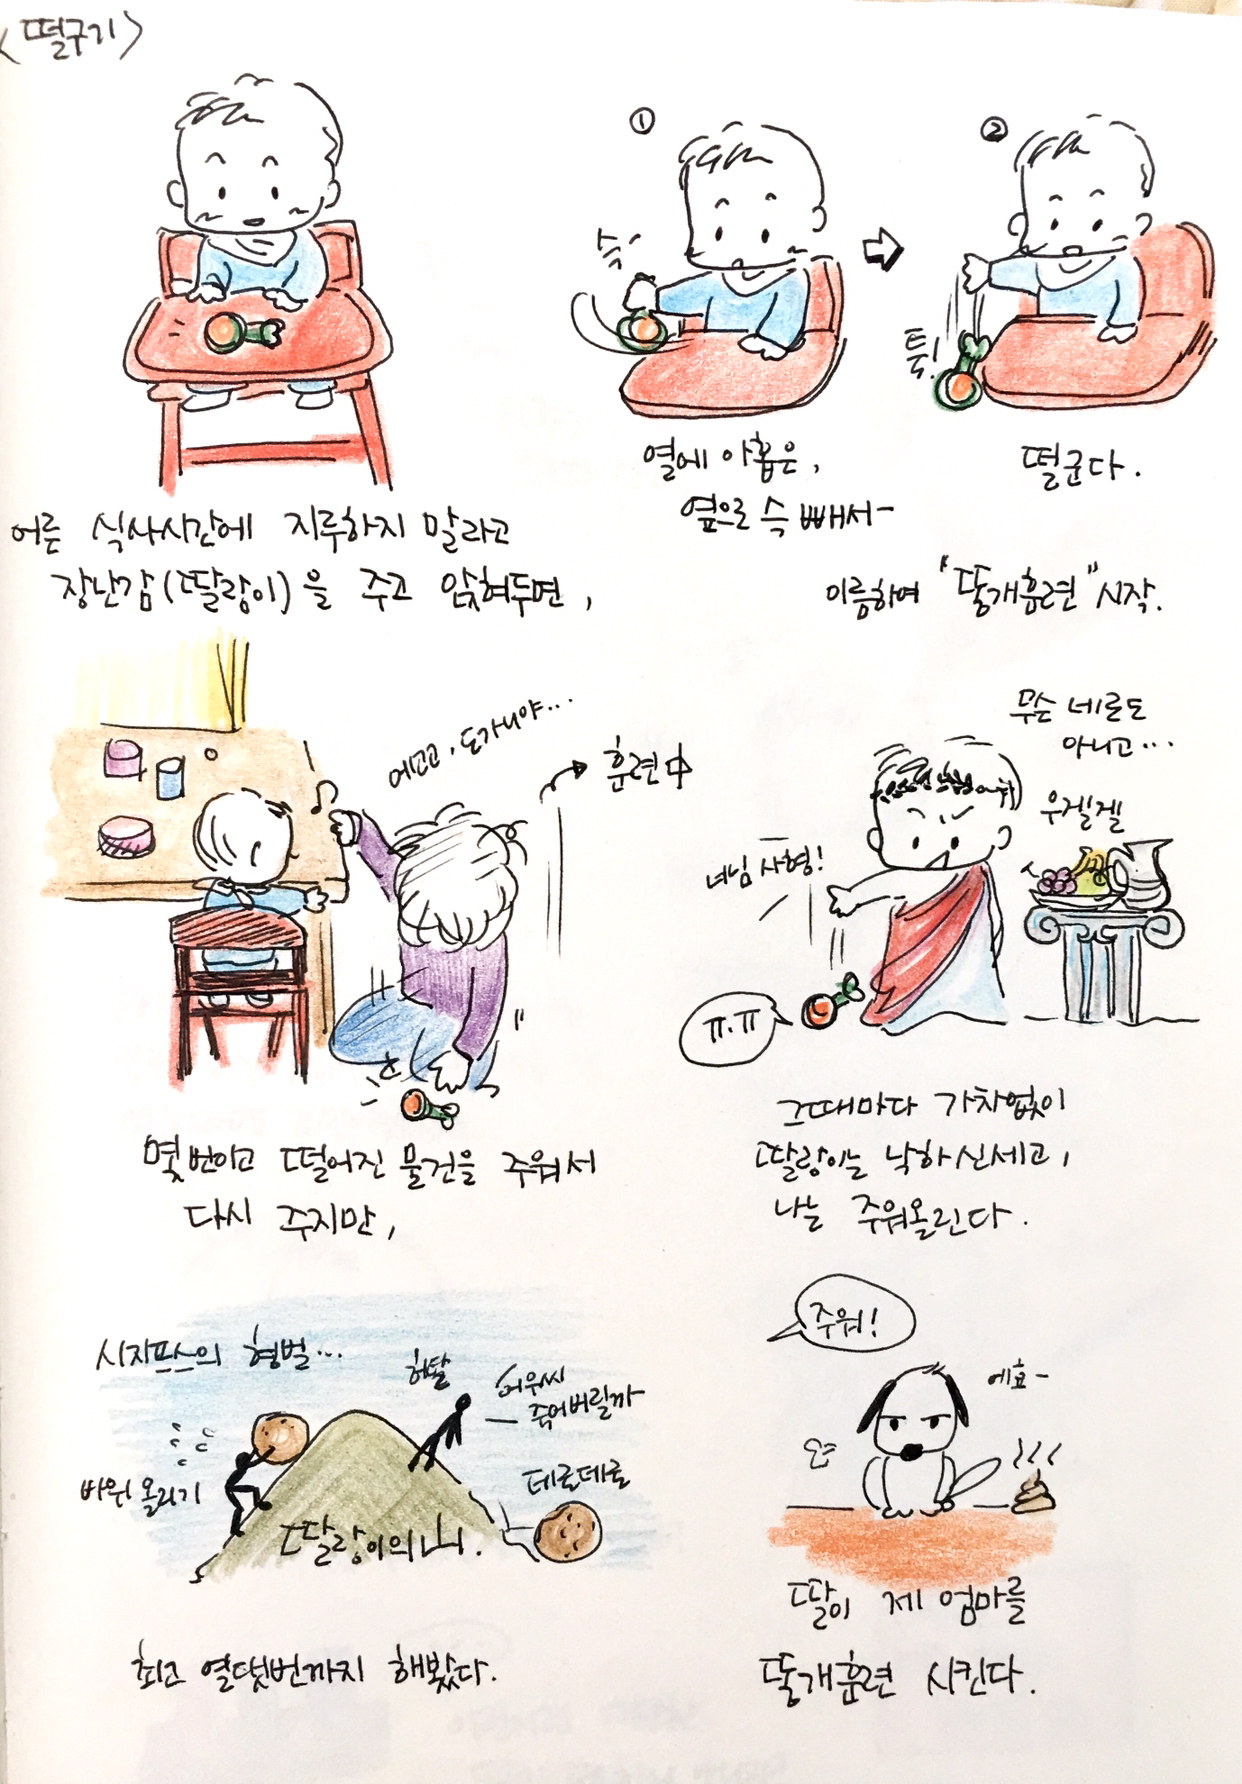 <떨구기>
어른 식사시간에 지루하지 말라고
장난감(딸랑이)을 주고 앉혀두면,
①
슥
열에 아홉은,
옆으로 슥 빼서-
②
툭!
떨군다.
이름하여 "똥개훈련" 시작.
에고고, 도가니야...
훈련中
몇번이고 떨어진 물건을 주워서
다시 주지만,
무슨 네로도
아니고...
우겔겔
녀님 사형!
ㅠ.ㅠ
그때마다 가차없이
딸랑이는 낙하신세고,
나는 주워올린다.
시지프스의 형벌...
바위 올리기
허탈
어우씨
죽어버릴까
데르데르
딸랑이의 山.
최고 열댓번까지 해봤다.
주워!
에효-
딸이 제 엄마를
똥개훈련 시킨다.